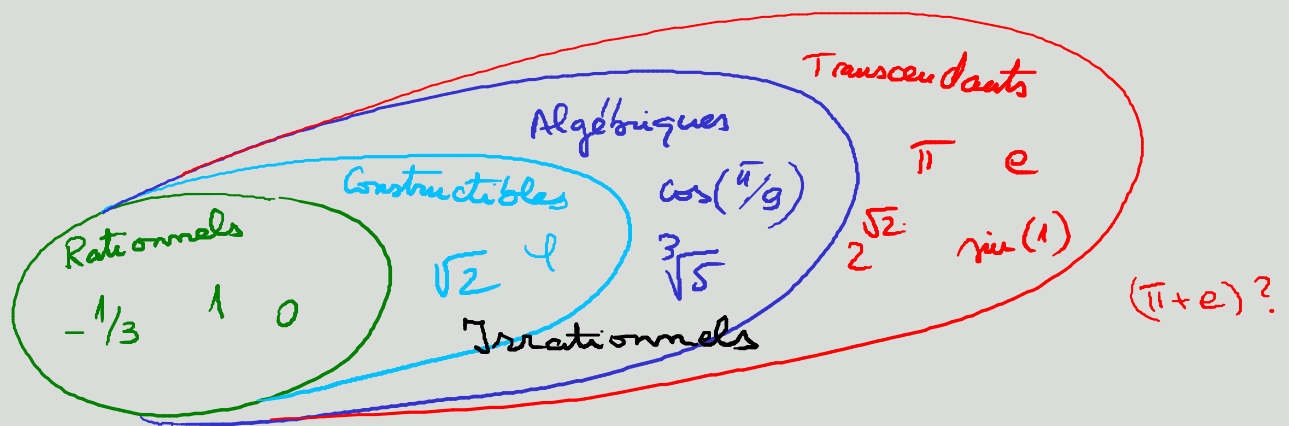 Transcendants
Algébriques
π e
Constructibles
cos(π/9)
Rationnels
√2 φ
∛5
2^√2 sin(1)
-1/3 1 0
(π+e)?
Irrationnels